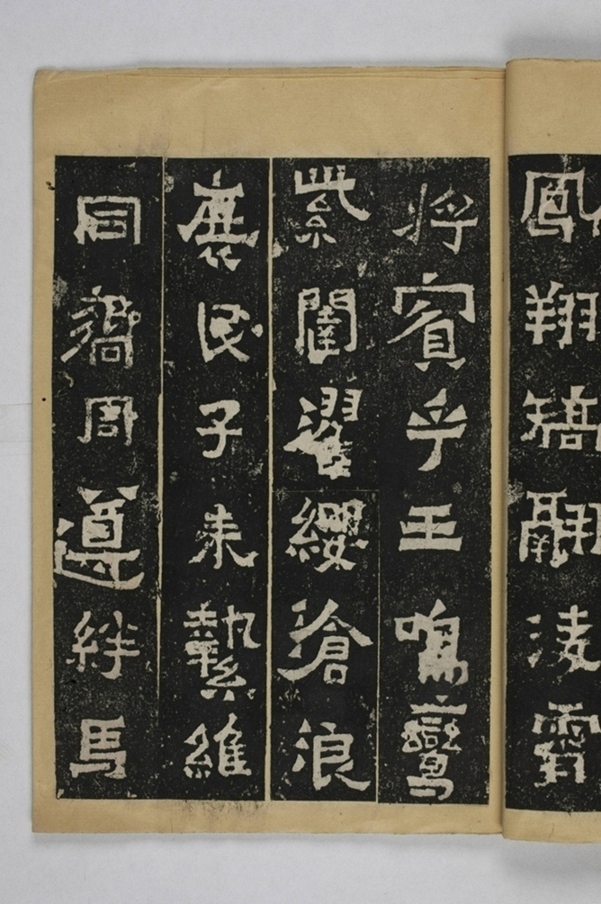 鳳翔矯翮淩霄
將賓乎王鳴鸞
紫闥濯纓滄浪
庶民子来縶維
同嚮周遵絆馬